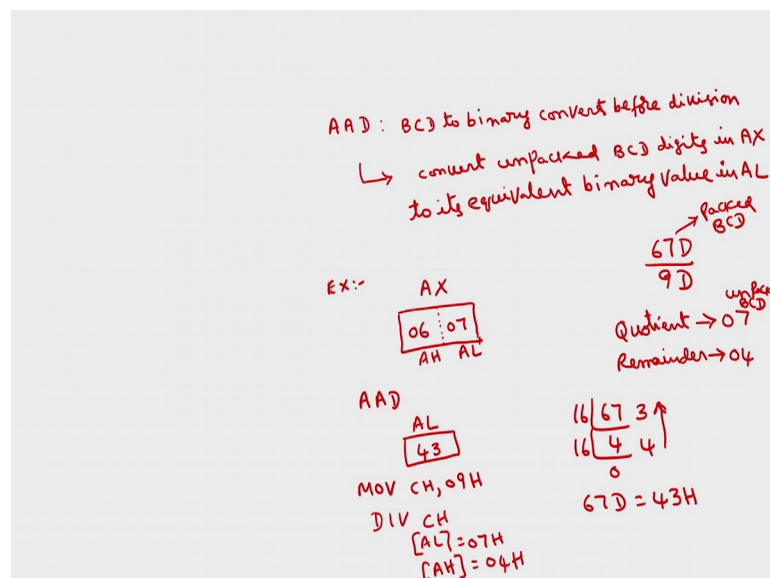 AAD : BCD to binary convert before division
↳ convert unpacked BCD digits in AX
to its equivalent binary value in AL
Packed
BCD
67D
9D
EX:-
AX
06 07
AH AL
BCD
Quotient → 07
Remainder → 04
AAD
AL
43
MOV CH, 09H
DIV CH
[AL] = 07H
[AH] = 04H
16 67 3
16 4 4
0
67D = 43H